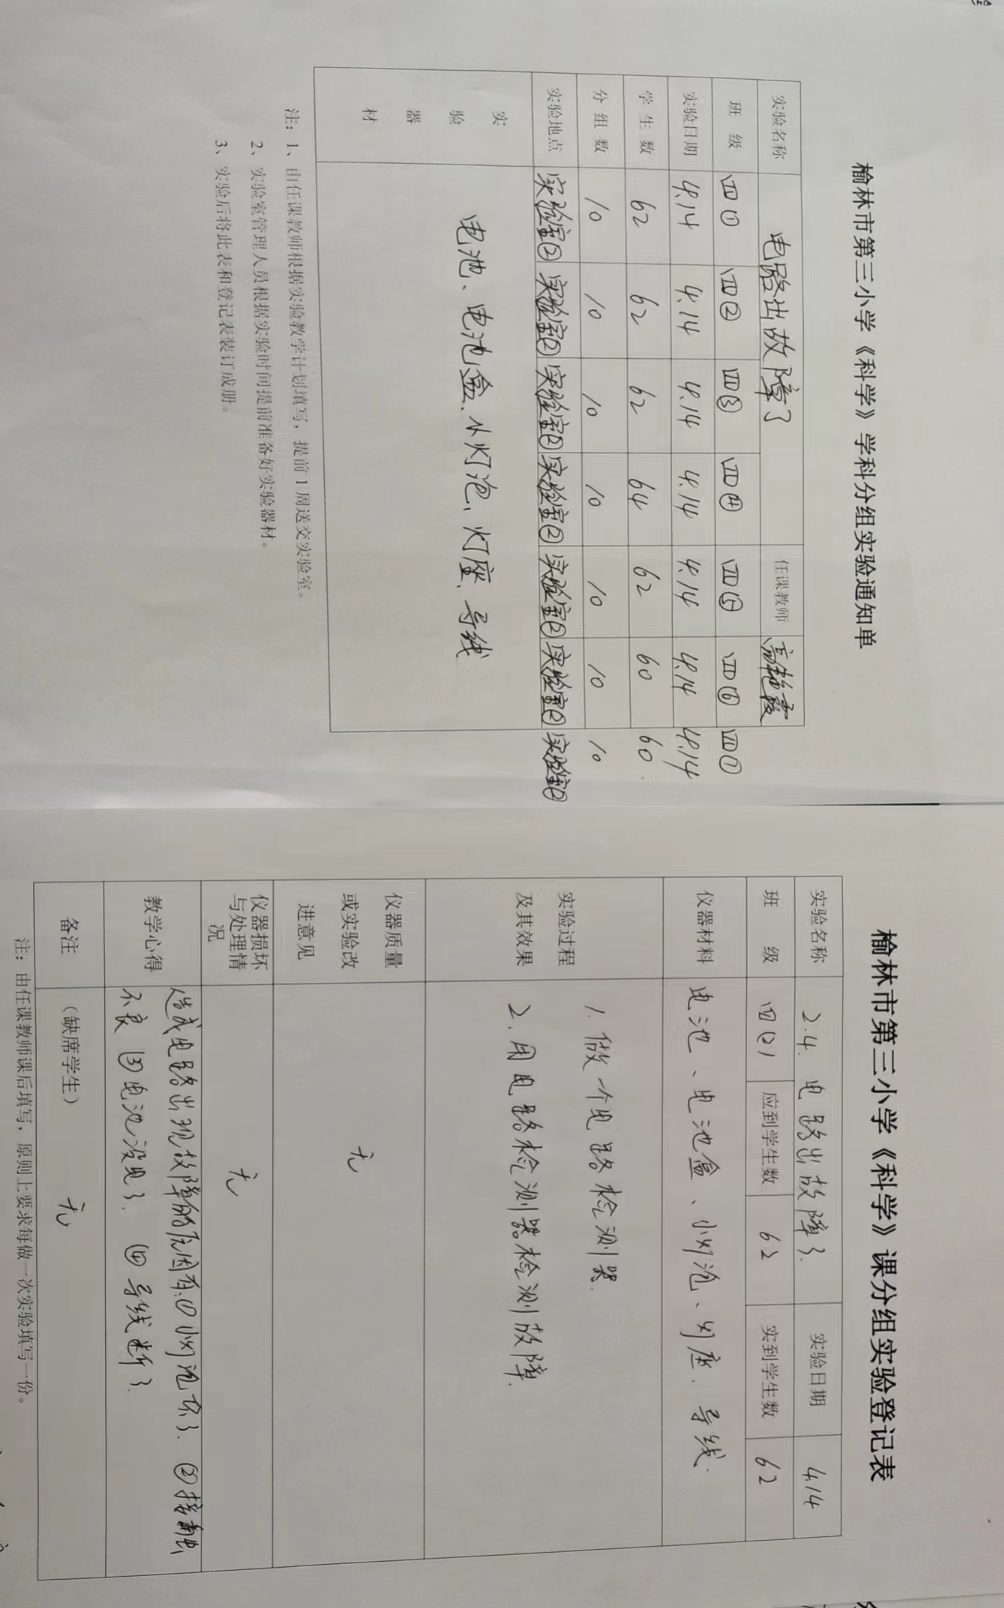 榆林市第三小学《科学》学科分组实验通知单
实验名称 电路出故障了 任课教师 高艳霞
班级 四① 四② 四③ 四④ 四⑤ 四⑥ 四⑦
实验日期 4.14 4.14 4.14 4.14 4.14 4.14 4.14
学生数 62 62 62 64 62 60 60
分组数 10 10 10 10 10 10 10
实验地点 实验室② 实验室② 实验室② 实验室② 实验室② 实验室② 实验室②
实验器材 电池、电池盒、小灯泡、灯座、导线
注：1、由任课教师根据实验教学计划填写，提前1周送交实验室。
2、实验室管理人员根据实验时间提前准备好实验器材。
3、实验后将此表和登记表装订成册。
榆林市第三小学《科学》课分组实验登记表
实验名称 2.4.电路出故障了. 实验日期 4.14
班级 四(2) 应到学生数 62 实到学生数 62
仪器材料 电池、电池盒、小灯泡、灯座、导线.
实验过程及其效果 1.做个电路检测器.
2.用电路检测器检测故障.
仪器质量或实验改进意见 无
仪器损坏与处理情况 无
教学心得 造成电路出现故障的原因有:①小灯泡坏了.②接触
不良 ③电池没电了. ④导线断了.
备注 (缺席学生) 无
注：由任课教师课后填写，原则上要求每做一次实验填写一份。